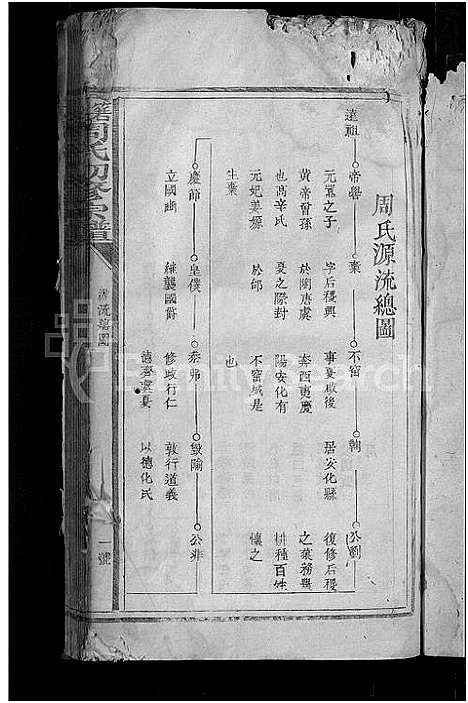 周氏源流總圖
遠祖 帝嚳 棄 不窋 鞠 公劉
元囂之子 字后稷興 事夏政後 居安化縣 復修后稷
黃帝曾孫 於陶唐虞 奔西夷慶 之業務
也高辛氏 夏之際封 陽安化有 耕種百姓
元妃姜嫄 於邰 不窋城是 懷之
生棄 也
慶節 皇僕 差弗 毀隃 公非
立國 纘襲國爵 修政行仁 敦行道義
德 以德化民
周氏初修宗譜
源流總圖
一號
FamilySearch